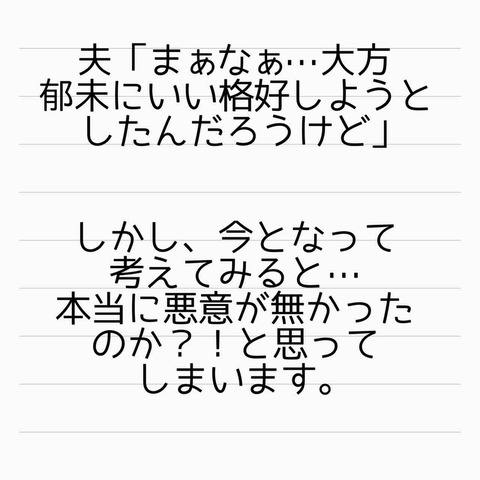 夫「まぁなぁ…大方
郁未にいい格好しようと
したんだろうけど」
しかし、今となって
考えてみると…
本当に悪意が無かった
のか？！と思って
しまいます。